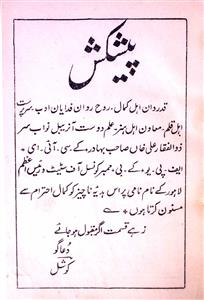 پیشکش
قدردان اہل کمال، روح روان فدایان ادب سرپرست
اہل قلم، معاون اہل ہنر، علم دوست آنریبل نواب سر
ذوالفقار علی خاں صاحب بہادر، کے۔ سی۔ آئی۔ ای۔
ایف۔ پی۔ یو۔ کے۔ بی۔ ممبر کونسل آف سٹیٹ و رئیس اعظم
لاہور کے نام نامی پر اس ہدیۂ ناچیز کو کمال احترام سے
معنون کرتا ہوں۔
زہے قسمت اگر مقبول ہو جائے
دعا گو
کوشل